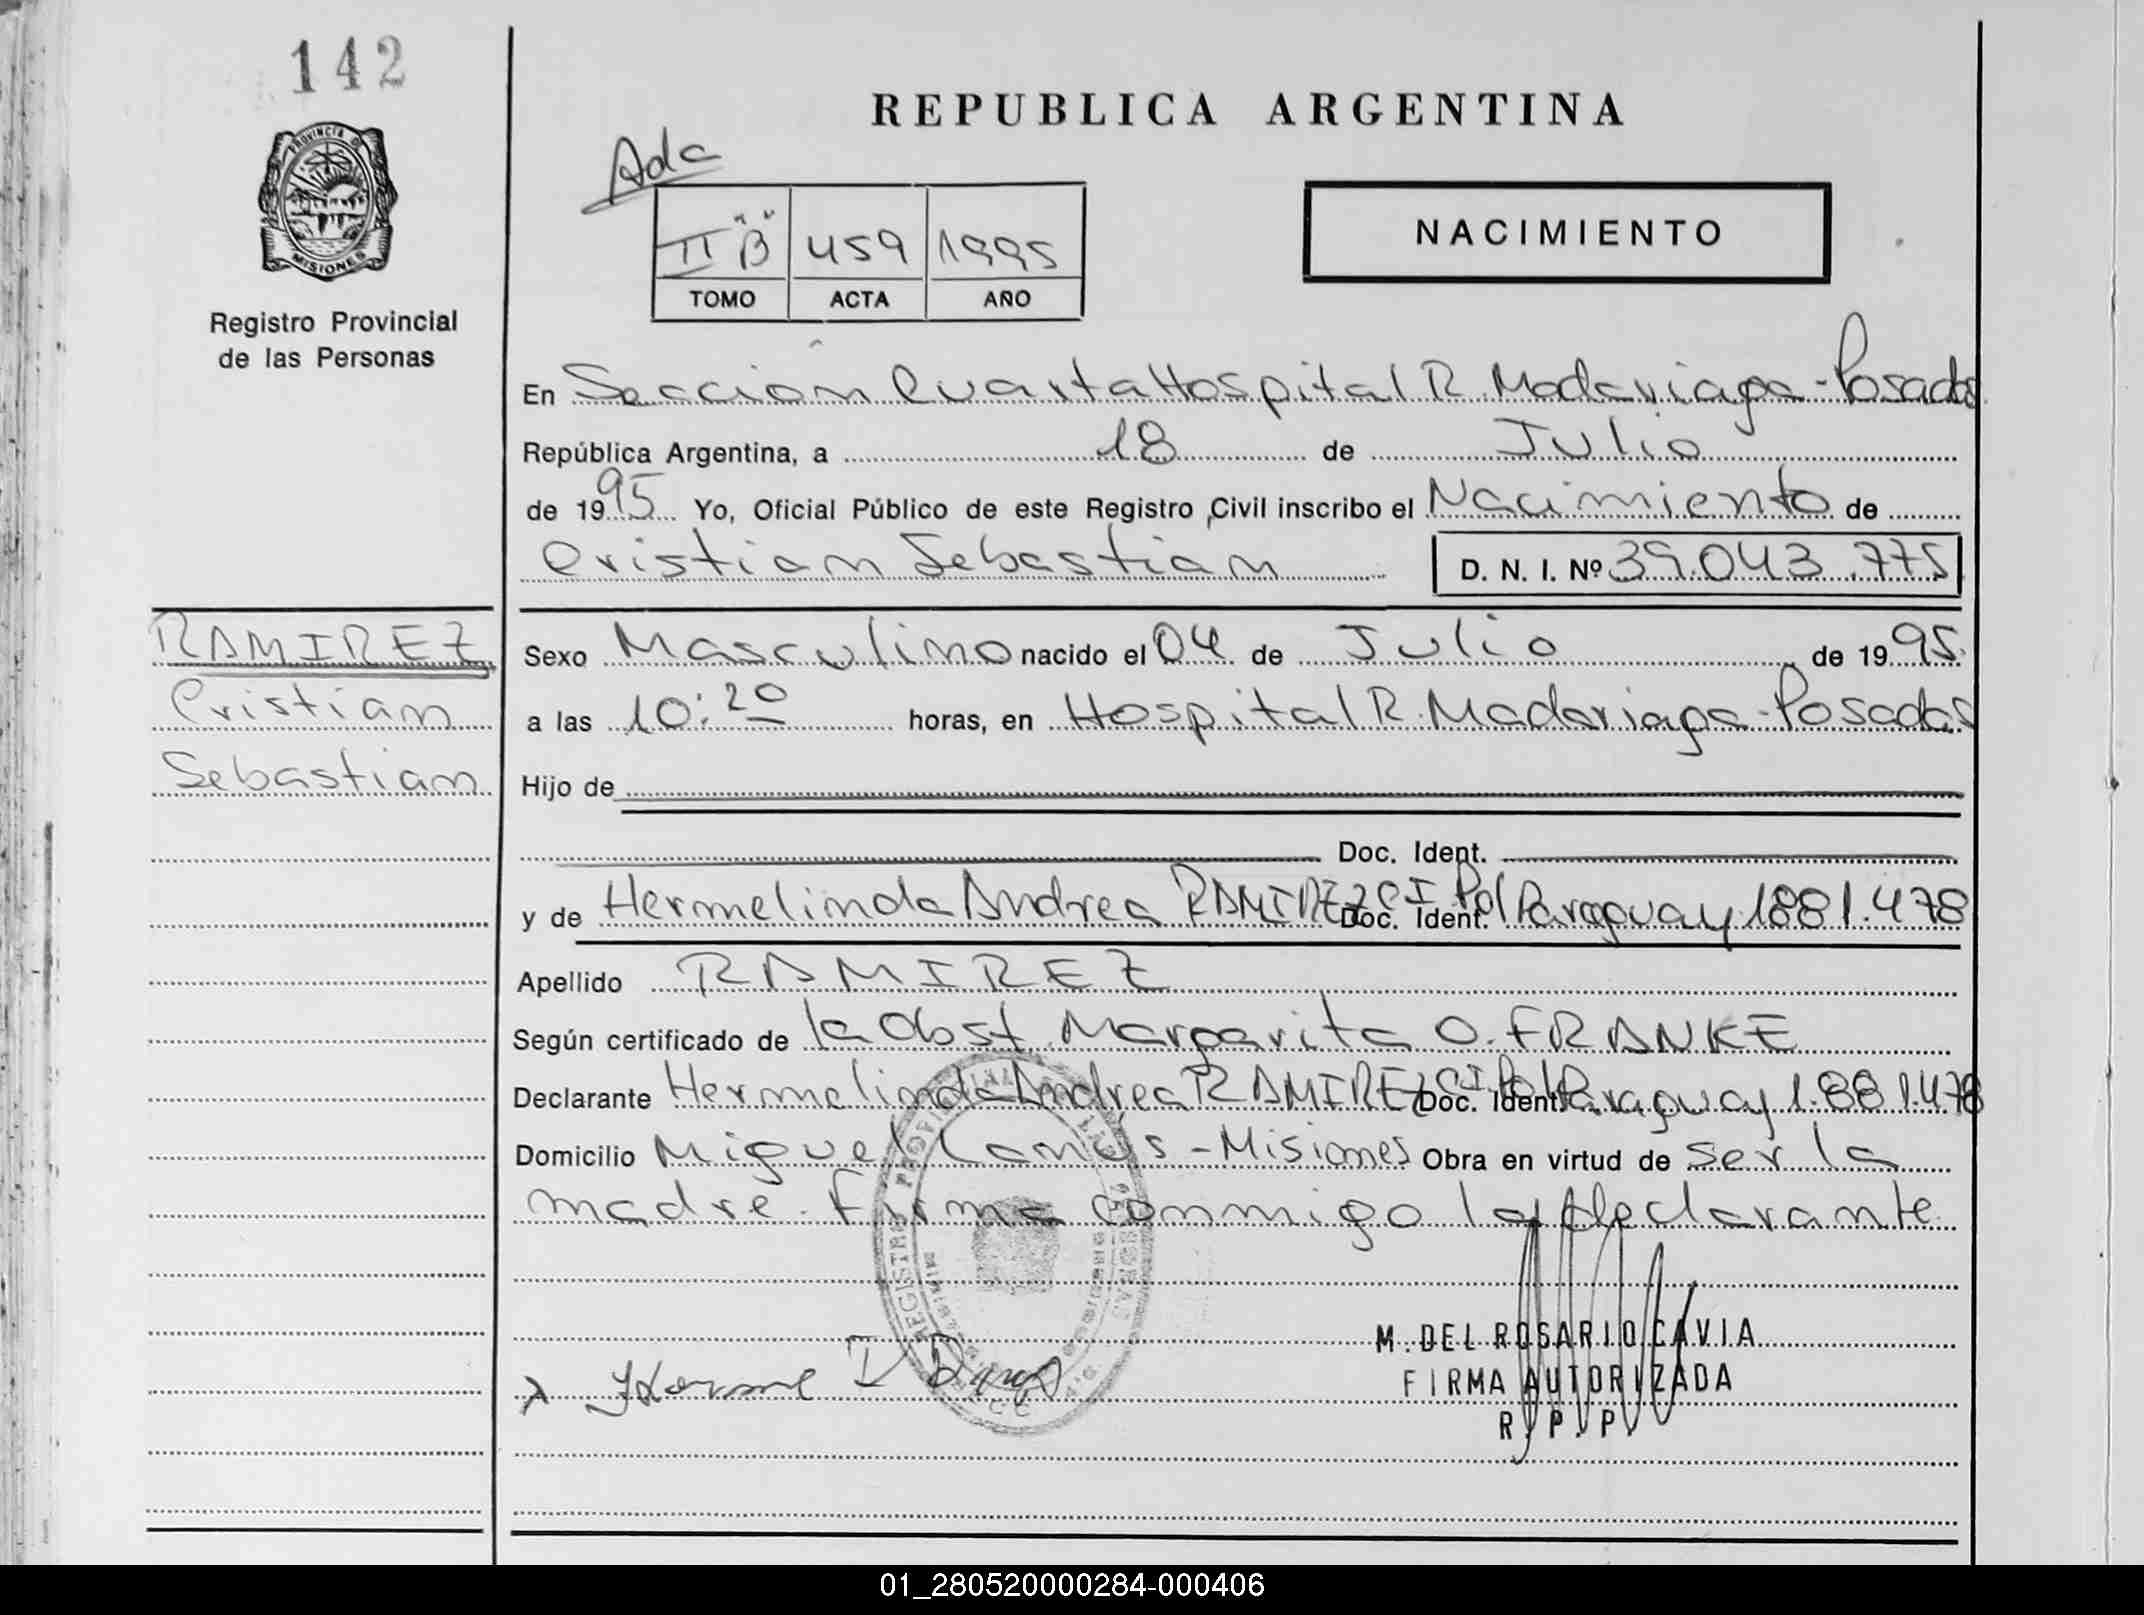 142
PROVINCIA DE
MISIONES
Registro Provincial
de las Personas
REPUBLICA ARGENTINA
Ada
II "B" 459 1995
TOMO ACTA AÑO
NACIMIENTO
En Sección Cuarta Hospital R. Madariaga - Posadas
República Argentina, a 18 de Julio
de 1995 Yo, Oficial Público de este Registro Civil inscribo el Nacimiento de
Cristian Sebastian D. N. I. Nº 39.043.775
RAMIREZ
Cristian
Sebastian
Sexo Masculino nacido el 04 de Julio de 1995.
a las 10:20 horas, en Hospital R. Madariaga - Posadas
Hijo de
Doc. Ident.
y de Hermelinda Andrea RAMIREZ Doc. Ident. CI Pol Paraguay 1881.478
Apellido RAMIREZ
Según certificado de la Obst. Margarita O. FRANKE
Declarante Hermelinda Andrea RAMIREZ Doc. Ident. CI Pol Paraguay 1.881.478
Domicilio Miguel Lanús - Misiones Obra en virtud de ser la
madre. Firma conmigo la declarante
M. DEL ROSARIO CAVIA
FIRMA AUTORIZADA
R. P. P.
01_280520000284-000406